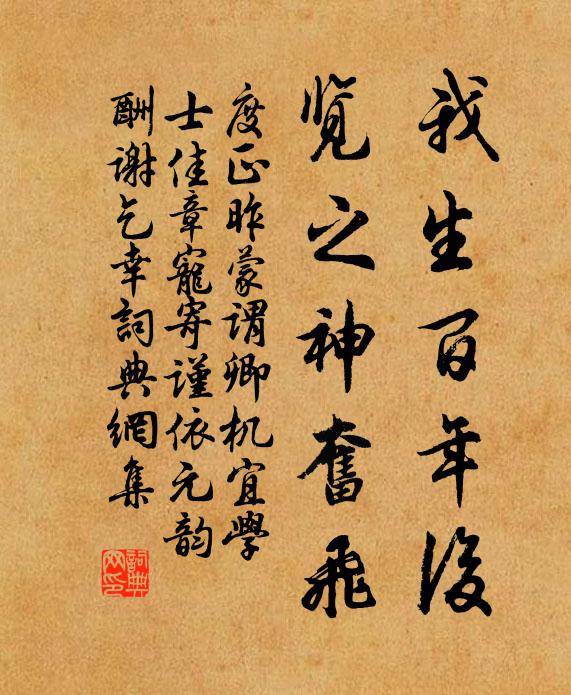 我生百年後
览之神奮飛
度正昨蒙谓卿机宜學
士佳章寵寄谨依元韵
酬谢乞幸詞典網集
詞典网印